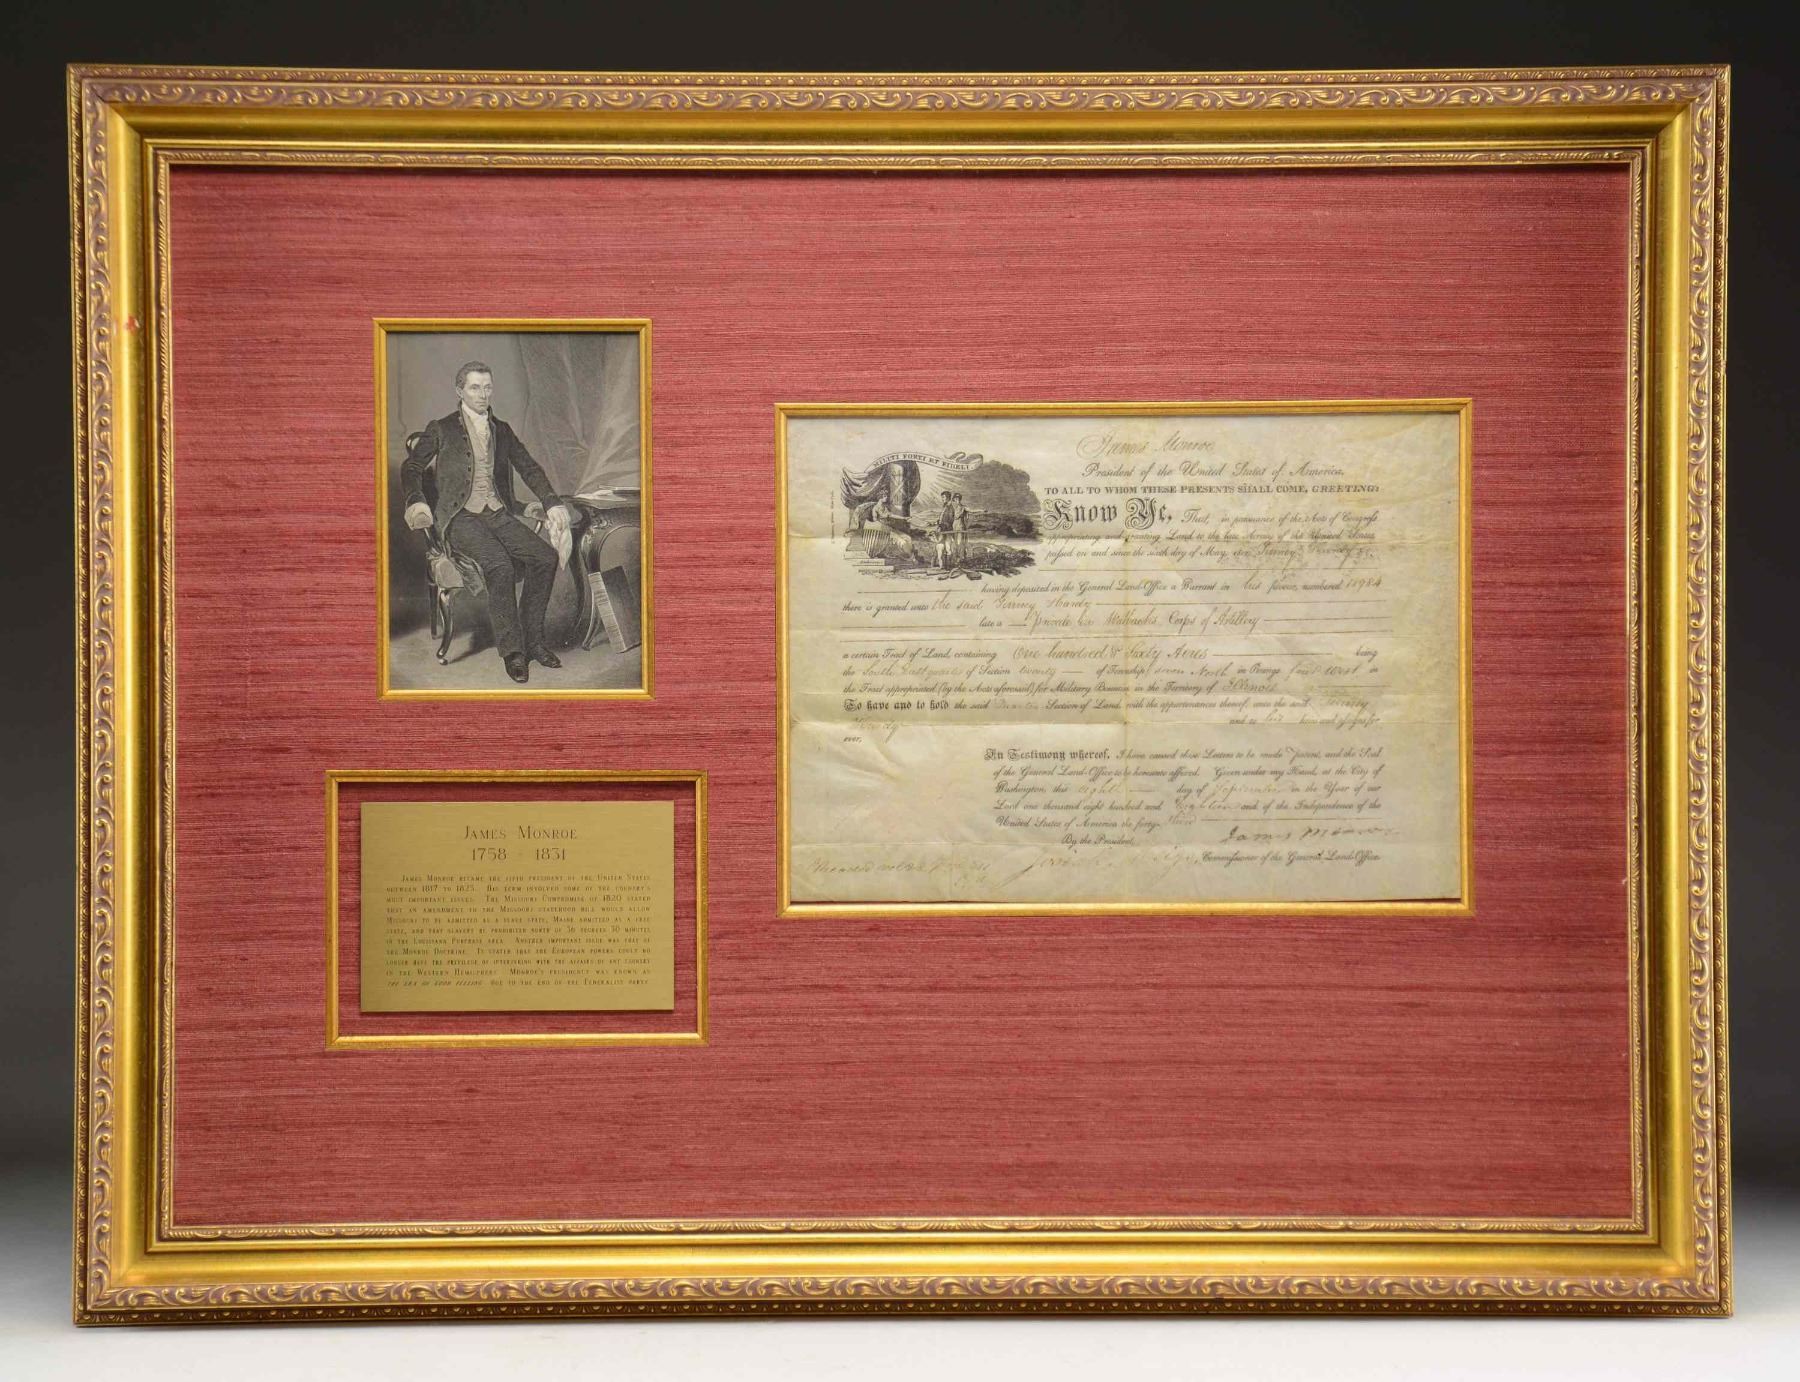 JAMES MONROE
1758 - 1831
JAMES MONROE BECAME THE FIFTH PRESIDENT OF THE UNITED STATES
BETWEEN 1817 TO 1825. HIS TERM INVOLVED SOME OF THE COUNTRY'S
MOST IMPORTANT ISSUES. THE MISSOURI COMPROMISE OF 1820 STATED
THAT AN AMENDMENT TO THE MISSOURI STATEHOOD BILL WOULD ALLOW
MISSOURI TO BE ADMITTED AS A SLAVE STATE, MAINE ADMITTED AS A FREE
STATE, AND THAT SLAVERY BE PROHIBITED NORTH OF 36 DEGREES 30 MINUTES
IN THE LOUISIANA PURCHASE AREA. ANOTHER IMPORTANT ISSUE WAS THAT OF
THE MONROE DOCTRINE. IT STATED THAT THE EUROPEAN POWERS COULD NO
LONGER HAVE THE PRIVILEGE OF INTERVENING WITH THE AFFAIRS OF ANY COUNTRY
IN THE WESTERN HEMISPHERE. MONROE'S PRESIDENCY WAS KNOWN AS
THE ERA OF GOOD FEELING DUE TO THE END OF THE FEDERALIST PARTY
MILITI FORTI ET FIDELI
James Monroe
President of the United States of America,
TO ALL TO WHOM THESE PRESENTS SHALL COME, GREETING:
Know Ye, That, in pursuance of the Acts of Congress
appropriating and granting Land to the late Army of the United States
passed on and since the sixth day of May, 1812
having deposited in the General Land-Office a Warrant in his favour, numbered 18984
there is granted unto the said Hardy
late a Private in Corps of Artillery
a certain Tract of Land, containing One hundred & Sixty Acres being
the South East quarter of Section twenty of Township seven North in Range four West in
the Tract appropriated (by the Acts aforesaid) for Military Bounties in the Territory of Illinois
To have and to hold the said Quarter Section of Land, with the appurtenances thereof, unto the said
Hardy and to his heirs and assigns for
ever.
In Testimony whereof, I have caused these Letters to be made Patent, and the Seal
of the General Land-Office to be hereunto affixed. Given under my Hand, at the City of
Washington, this eighth day of September in the Year of our
Lord one thousand eight hundred and Eighteen and of the Independence of the
United States of America the forty-third
By the President, James Monroe
Commissioner of the General Land-Office.